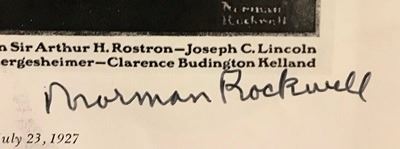 Norman
Rockwell
n Sir Arthur H. Rostron—Joseph C. Lincoln
ergesheimer—Clarence Budington Kelland
Norman Rockwell
July 23, 1927